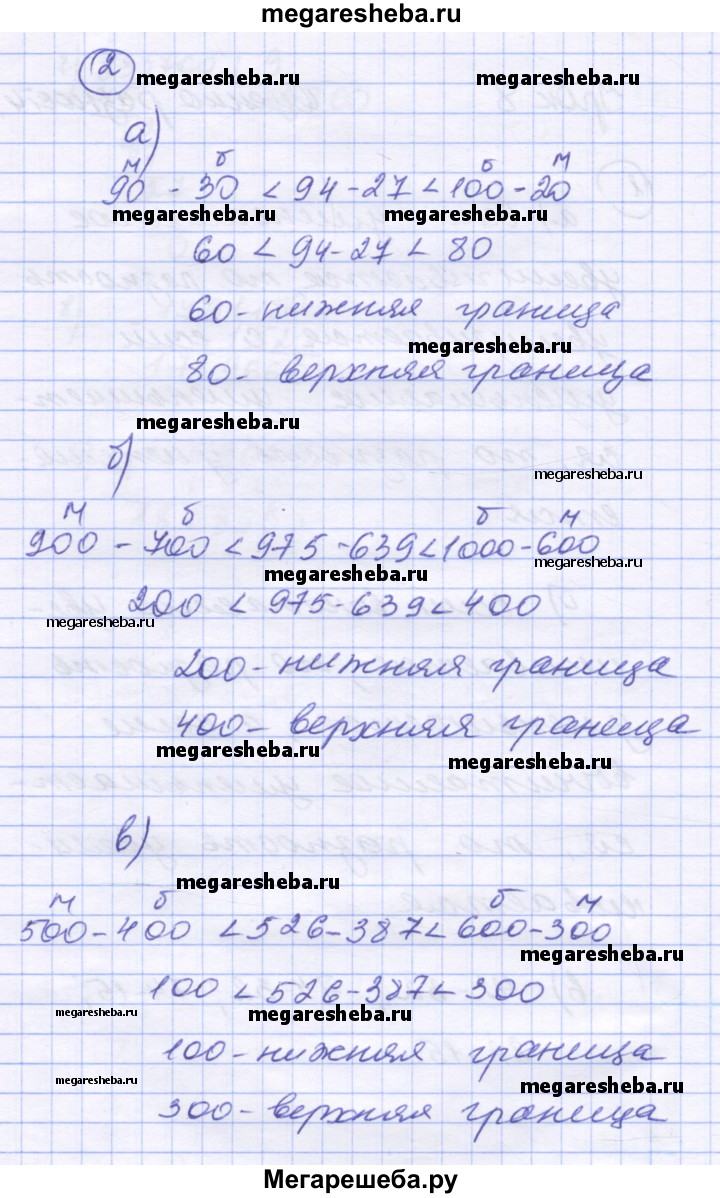 megaresheba.ru
2
megaresheba.ru megaresheba.ru
а)
м б б м
90 - 30 < 94 - 27 < 100 - 20
megaresheba.ru megaresheba.ru
60 < 94 - 27 < 80
60 - нижняя граница
megaresheba.ru
80 - верхняя граница
megaresheba.ru
б)
megaresheba.ru
м б б м
900 - 700 < 975 - 639 < 1000 - 600
megaresheba.ru megaresheba.ru
200 < 975 - 639 < 400
megaresheba.ru
200 - нижняя граница
400 - верхняя граница
megaresheba.ru megaresheba.ru
в)
megaresheba.ru
м б б м
500 - 400 < 526 - 387 < 600 - 300
megaresheba.ru
100 < 526 - 387 < 300
megaresheba.ru megaresheba.ru
100 - нижняя граница
megaresheba.ru megaresheba.ru
300 - верхняя граница
Мегарешеба.ру